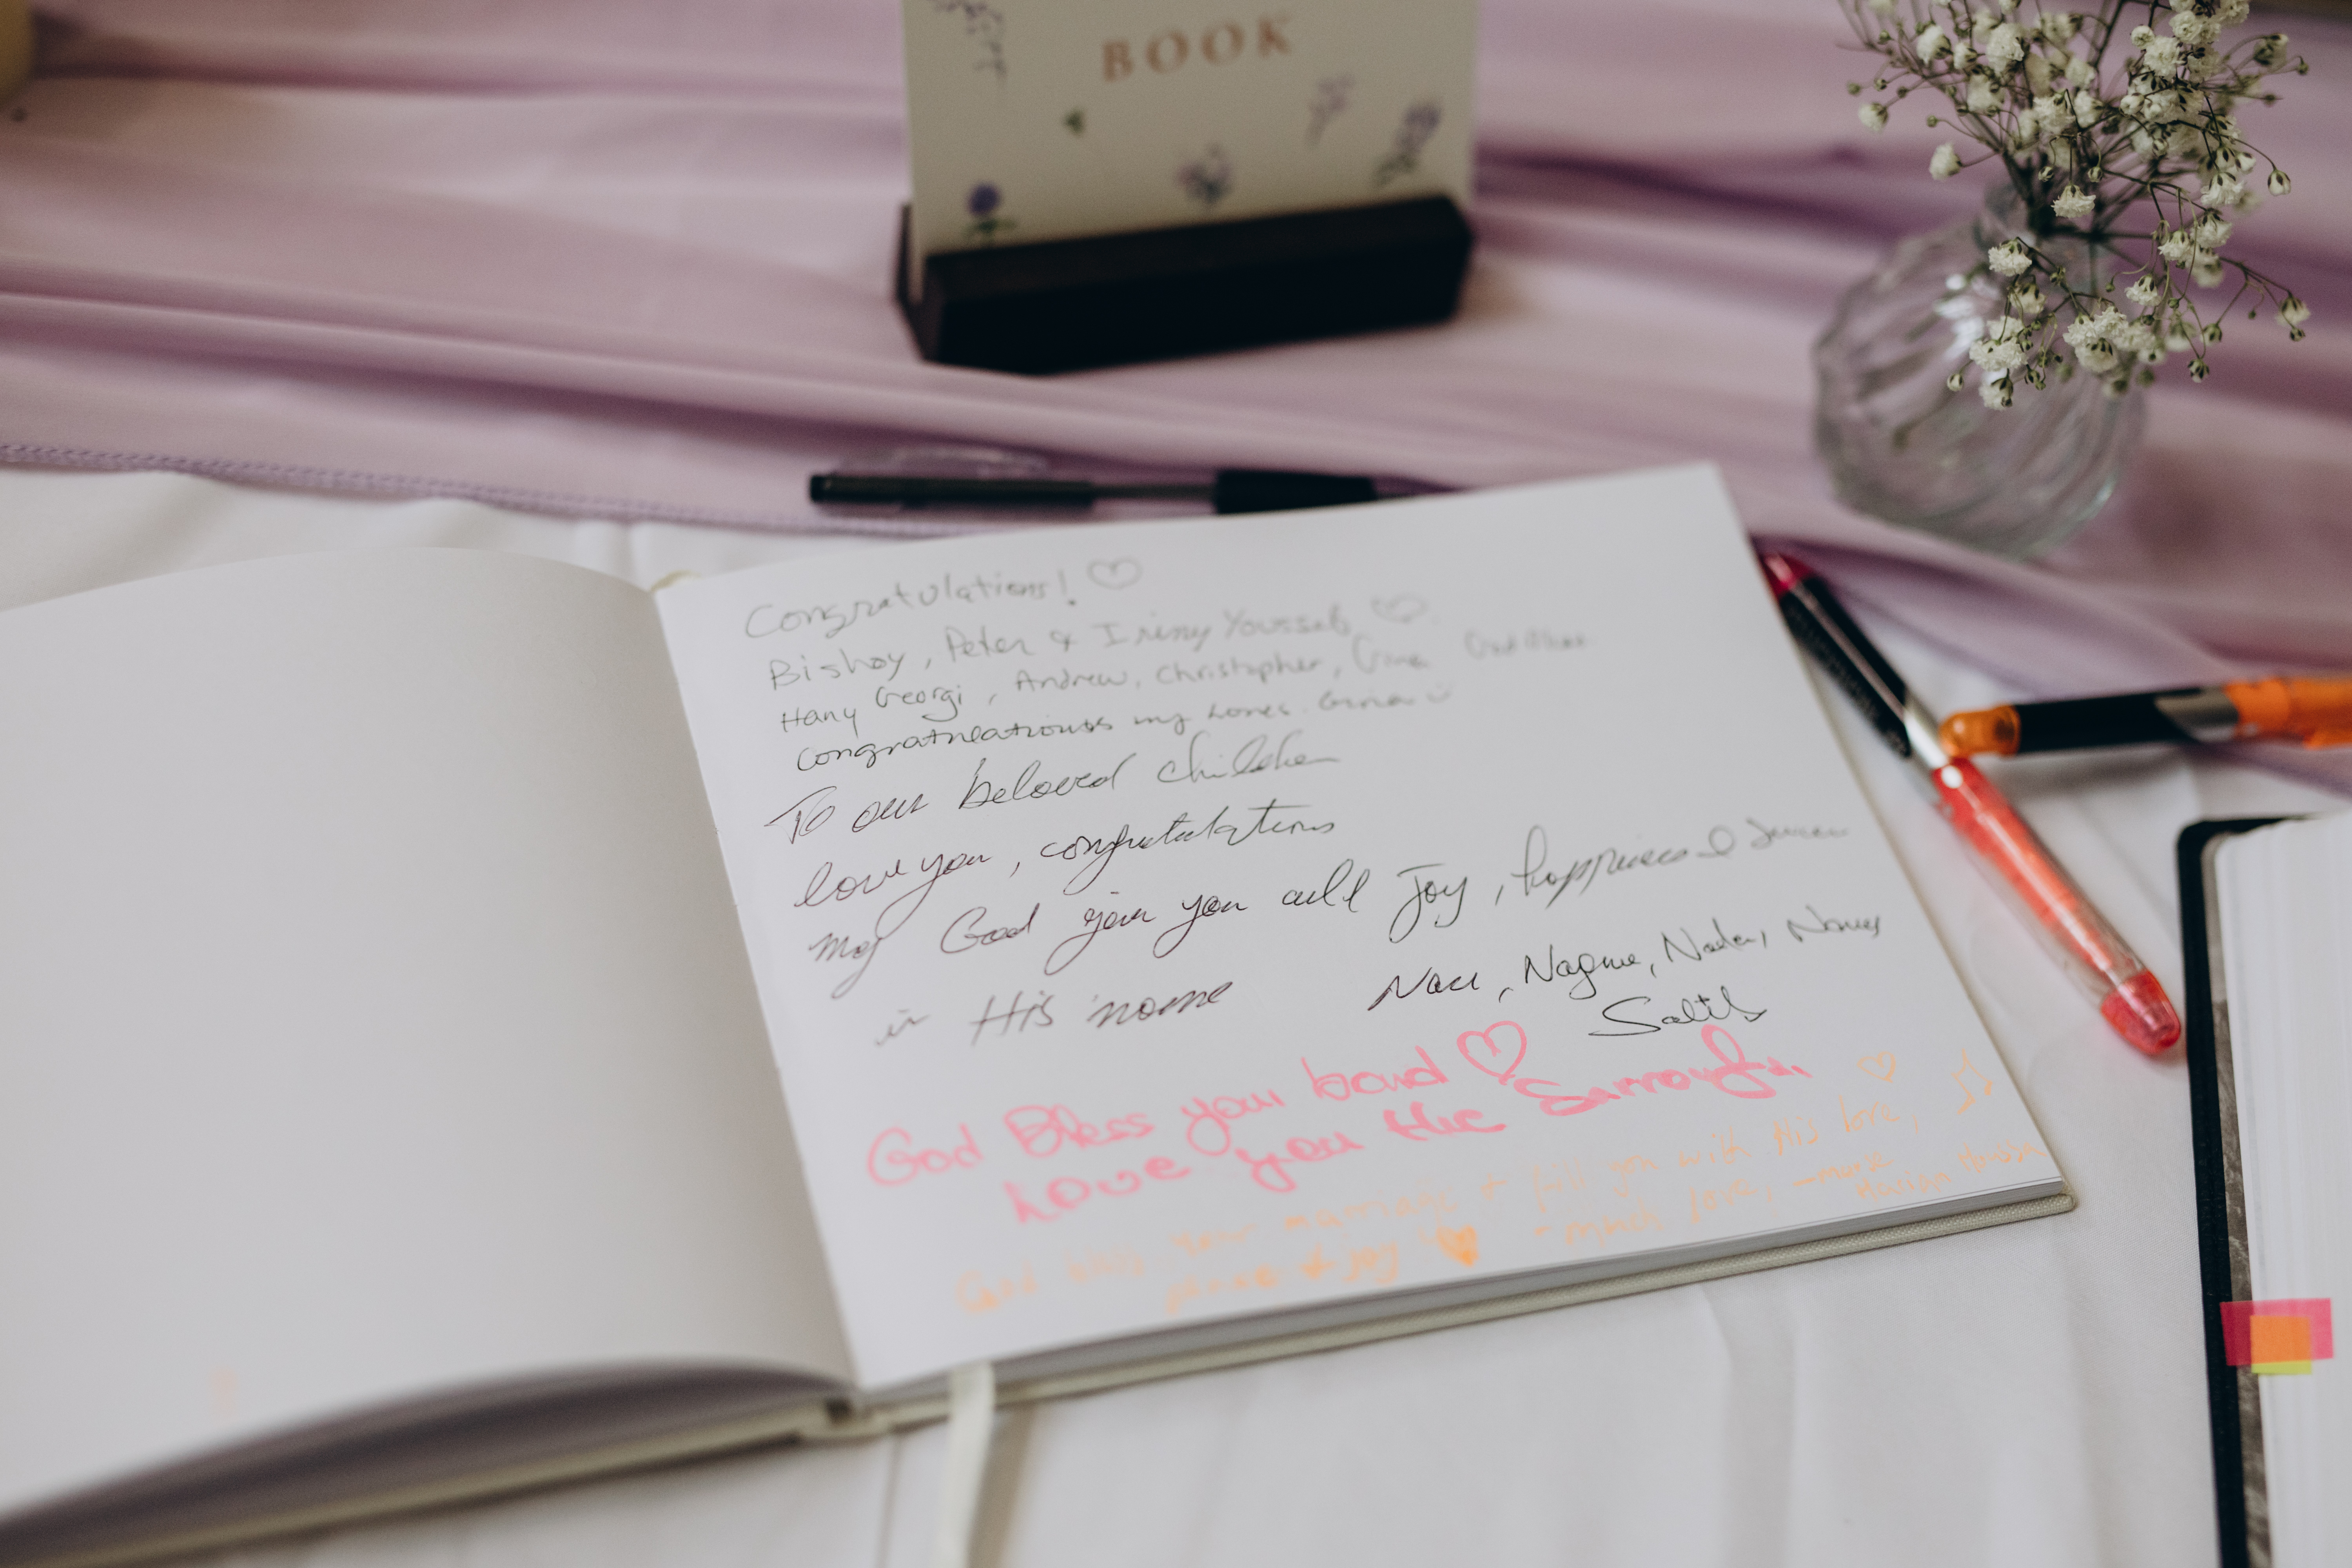 BOOK
Congratulations!
Bishoy, Peter & Iriny Youssef
Hany Georgi, Andrew, Christopher,
Congratulations my
To our beloved children
love you, congratulations
may God give you all Joy, happiness &
in His name
Nagwa, Nader,
God Bless your bond
Love you the
God bless your marriage + fill you with His love,
peace + joy - much love, -